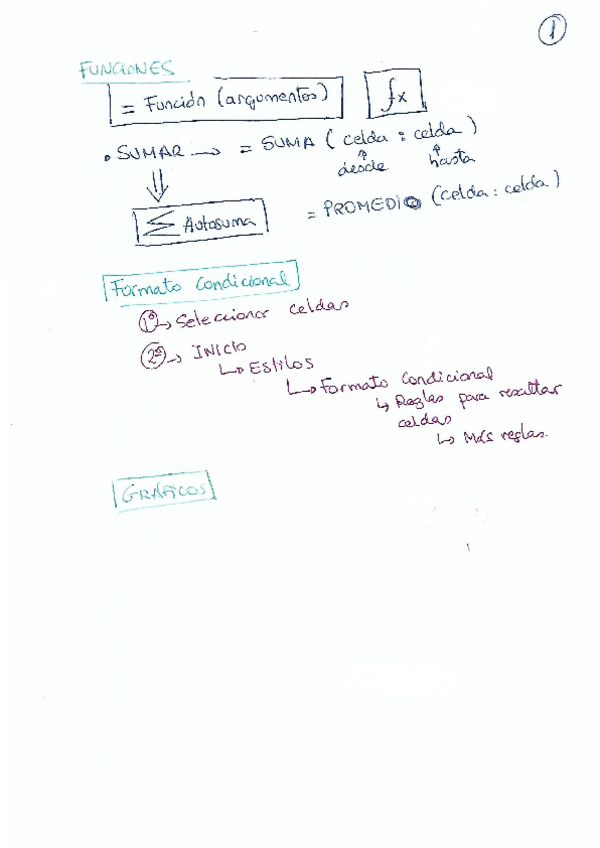 1
FUNCIONES
= Función (argumentos) fx
• SUMAR → = SUMA (celda : celda)
desde hasta
Σ Autosuma = PROMEDIO (celda : celda)
Formato Condicional
1º → Seleccionar celdas
2º → INICIO
↳ Estilos
↳ Formato Condicional
↳ Reglas para resaltar
celdas
↳ Más reglas.
GRÁFICOS